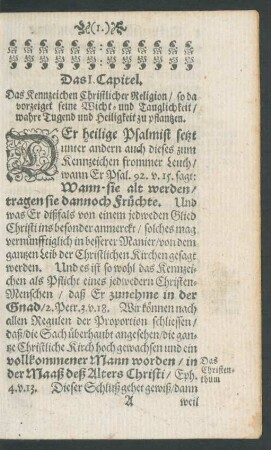 (1.)
Das I. Capitel.
Das Kennzeichen Chriſtlicher Religion / ſo da
vorzeiget ſeine Wicht- und Tauglichkeit /
wahre Tugend und Heiligkeit zu pflantzen.
DEr heilige Pſalmiſt ſetzt
unter andern auch dieſes zum
Kennzeichen frommer Leuth /
wann Er Pſal. 92. v. 15. ſagt:
Wann ſie alt werden /
tragen ſie dannoch Früchte. Und
was Er dißfals von einem jedweden Glied
Chriſti ins beſonder anmerckt / ſolches mag
vernünfftiglich in beſſerer Manier / von dem
gantzen Leib der Chriſtlichen Kirchen geſagt
werden. Und es iſt ſo wohl das Kennzei-
chen als Pflicht eines jedwedern Chriſten-
Menſchen / daß Er zunehme in der
Gnad / 2. Petr. 3. v. 18. Wir können nach
allen Regulen der Proportion ſchlieſſen /
daß / die Sach überhaubt angeſehen / die gan-
tze Chriſtliche Kirch hoch gewachſen und ein
vollkommener Mann worden / in
der Maaß deß Alters Chriſti / Eph.
4. v. 13. Dieſer Schluß gehet gewiß / dann
Das
Chriſten-
thum
A weil